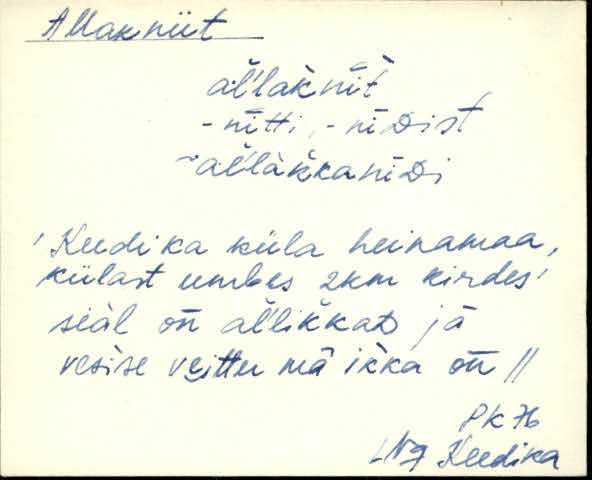 Allakniit
al'lakniit
-niitti, -niDist
~al'lakkaniDi
'Keedika küla heinamaa,
külast umbes 2km kirdes'
seäl on al'likkaD jä
vesise veittu mā ikka on //
PK 76
LNg Keedika